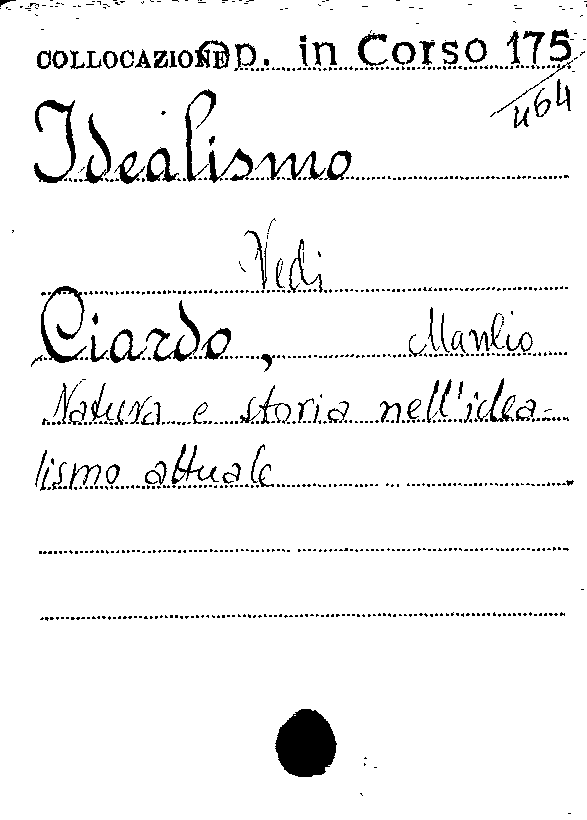 COLLOCAZIONE Op. in Corso 175
464
Idealismo
Vedi
Ciardo, Manlio
Natura e storia nell'idea-
lismo attuale